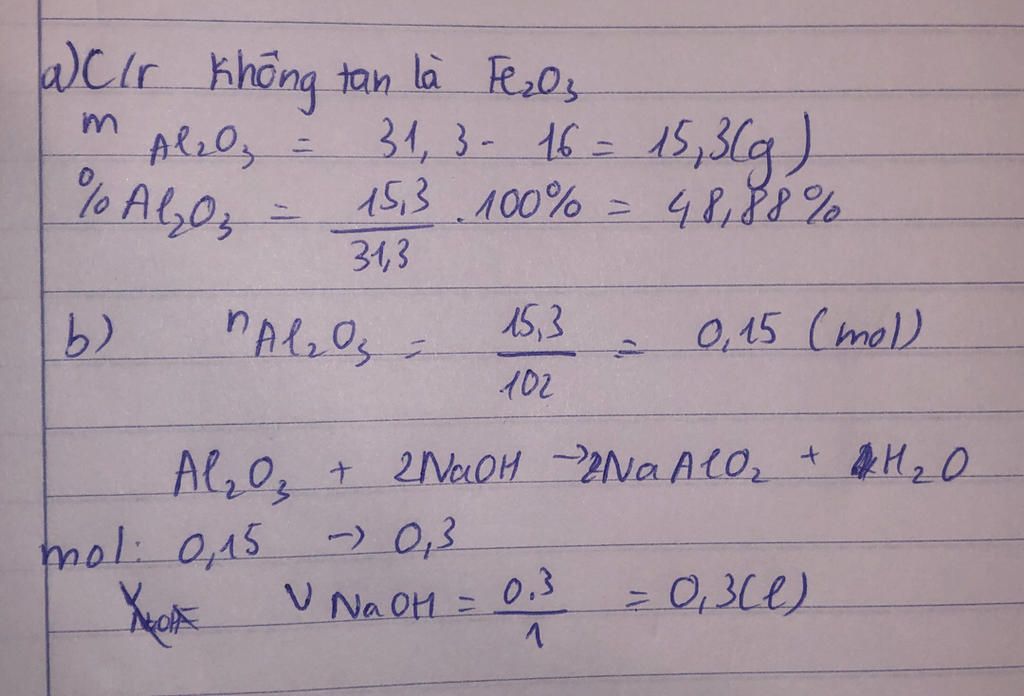 a) C/r không tan là Fe₂O₃
m Al₂O₃ = 31,3 - 16 = 15,3 (g)
% Al₂O₃ = 15,3/31,3 . 100% = 48,88%
b) n Al₂O₃ = 15,3/102 = 0,15 (mol)
Al₂O₃ + 2NaOH → 2NaAlO₂ + H₂O
mol: 0,15 → 0,3
V NaOH = 0.3/1 = 0,3 (l)